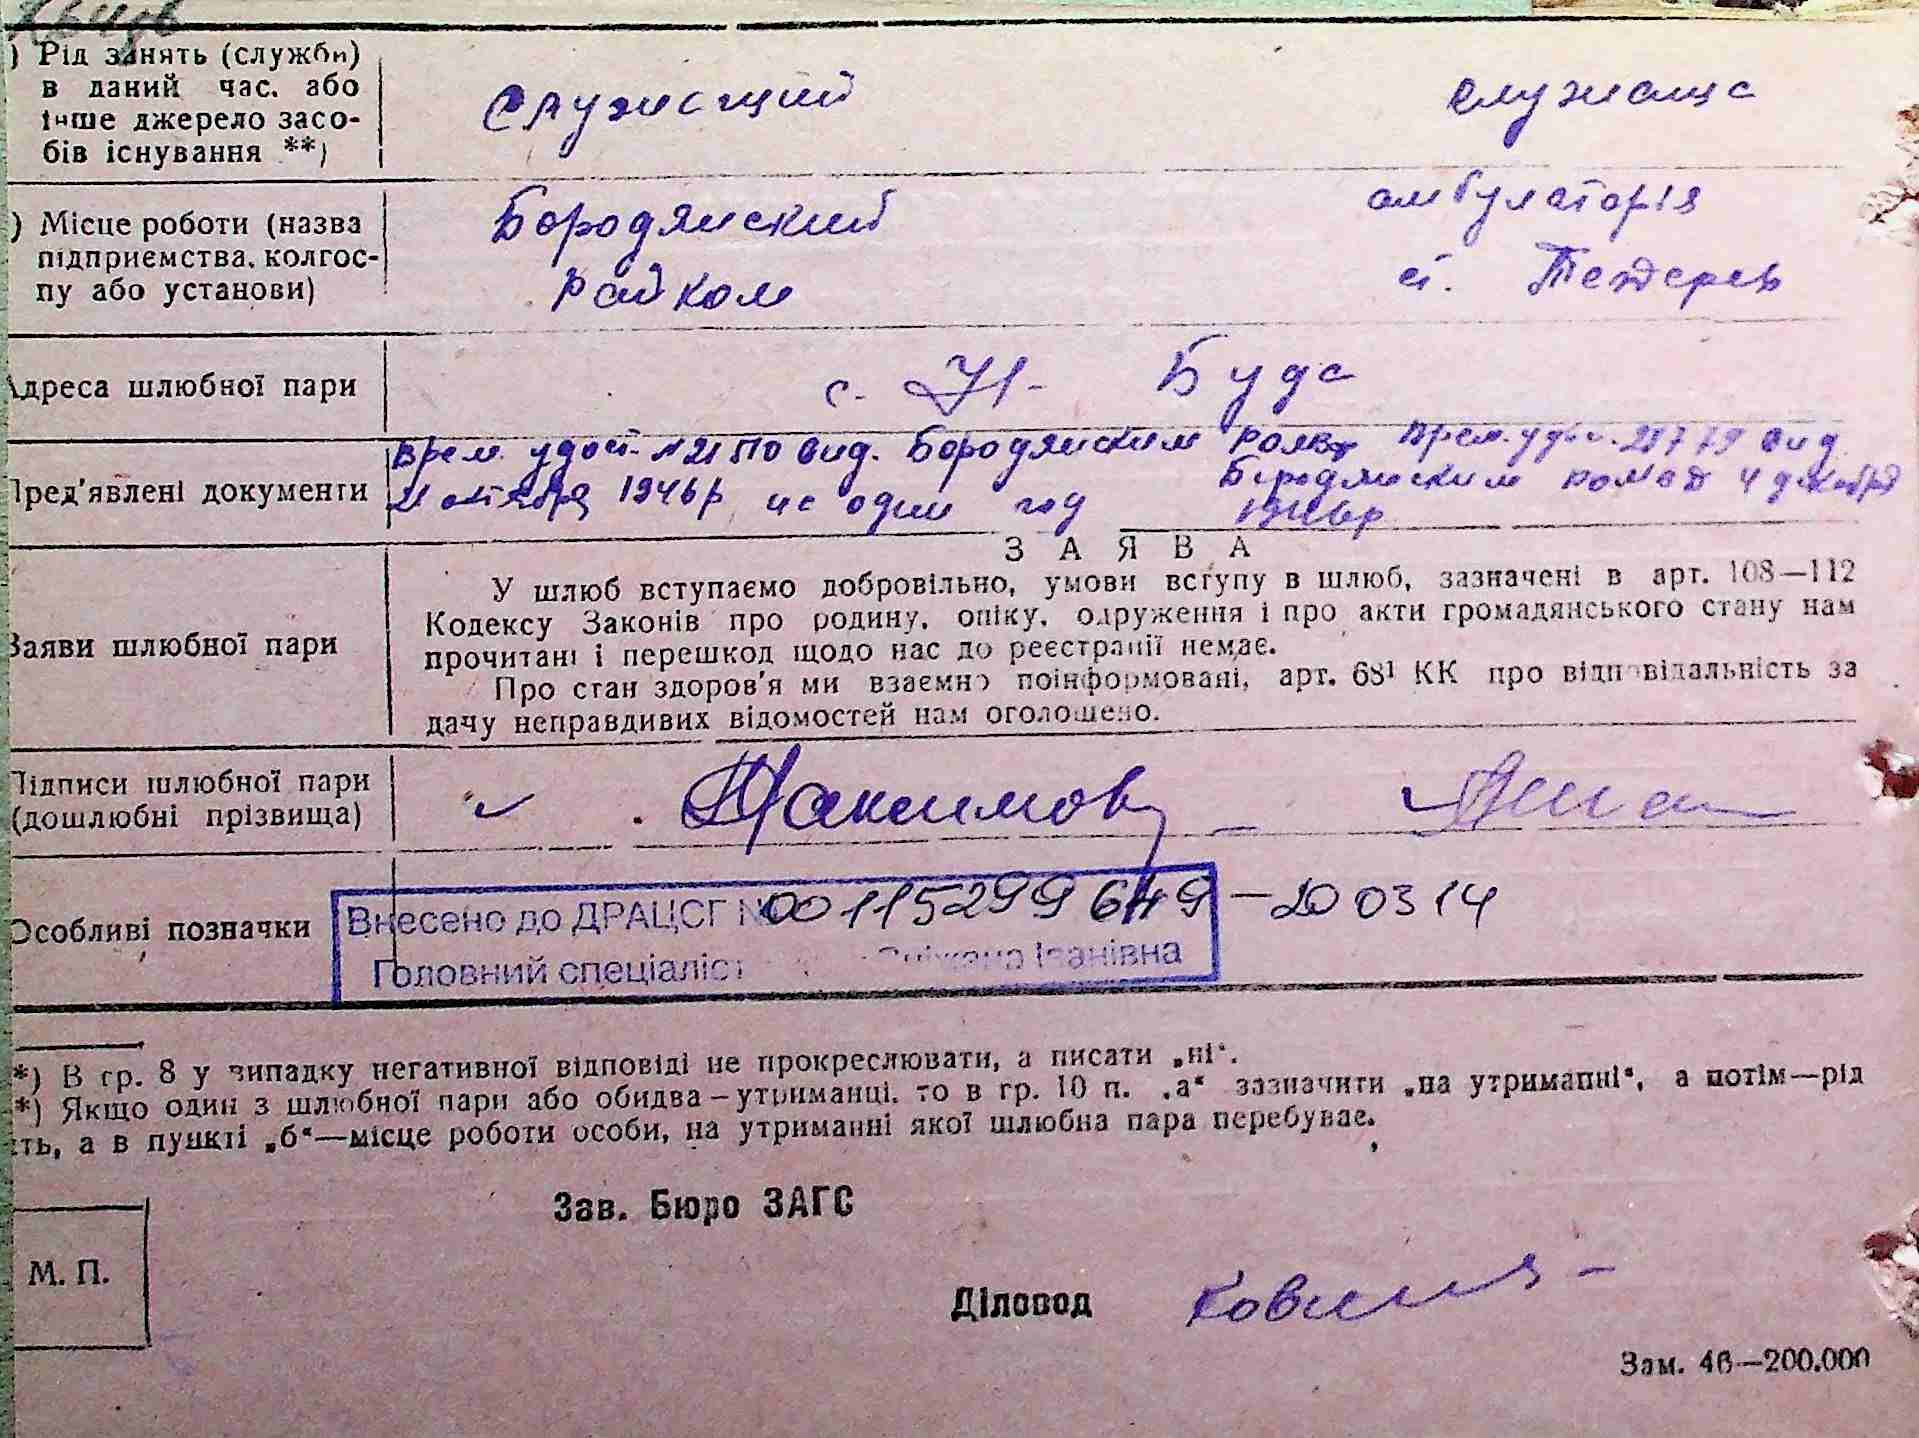 ) Рід занять (служби)
в даний час. або
інше джерело засо-
бів існування **)
Служащий
служаща
) Місце роботи (назва
підприємства, колгос-
пу або установи)
Бородянский
Райком
амбулаторія
ст. Тетерев
Адреса шлюбної пари
с. Н- Буда
Пред'явлені документи
врем. удост. №21510 вид. Бородянским
21 октября 1946р на один год
врем. удос. 21779 вид.
Бородянским 4 декабря
1946р
З А Я В А
Заяви шлюбної пари
У шлюб вступаємо добровільно, умови вступу в шлюб, зазначені в арт. 108—112
Кодексу Законів про родину, опіку, одруження і про акти громадянського стану нам
прочитані і перешкод щодо нас до реєстрації немає.
Про стан здоров'я ми взаємно поінформовані, арт. 68¹ КК про відповідальність за
дачу неправдивих відомостей нам оголошено.
Підписи шлюбної пари
(дошлюбні прізвища)
Максимов
Особливі позначки
Внесено до ДРАЦСГ № 00115299649 — 200314
Головний спеціаліст Іванівна
*) В гр. 8 у випадку негативної відповіді не прокреслювати, а писати „ні“.
*) Якщо один з шлюбної пари або обидва – утриманці, то в гр. 10 п. „а“ зазначити „на утриманні“, а потім—рід
ть, а в пункті „б“—місце роботи особи, на утриманні якої шлюбна пара перебуває.
Зав. Бюро ЗАГС
М. П.
Діловод
Зам. 46—200.000